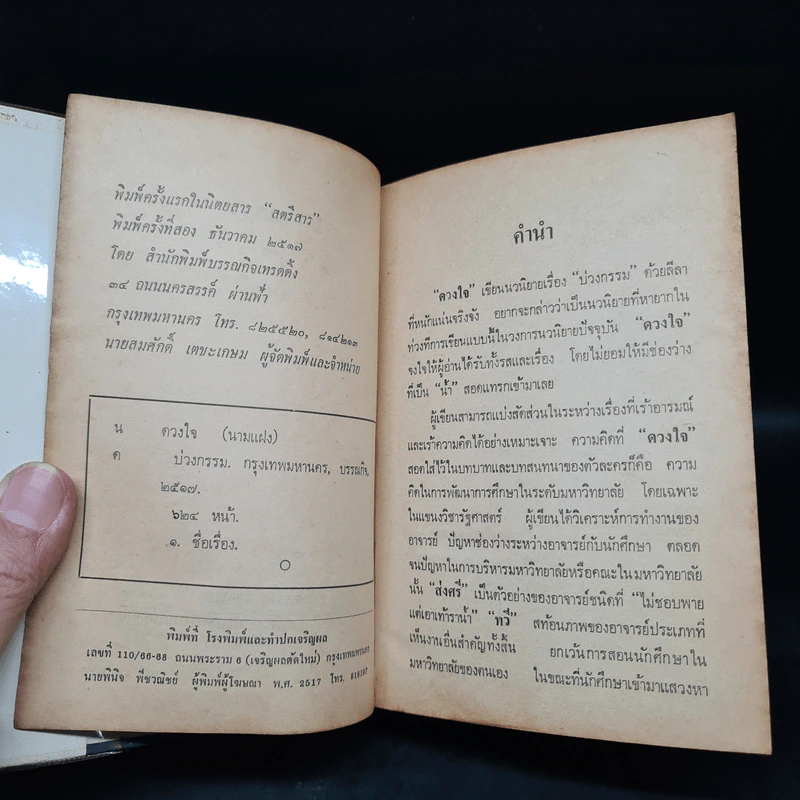 พิมพ์ครั้งแรกในนิตยสาร "สตรีสาร"
พิมพ์ครั้งที่สอง ธันวาคม ๒๕๑๗
โดย สำนักพิมพ์บรรณกิจเทรดดิ้ง
๓๔ ถนนนครสรรค์ ผ่านฟ้า
กรุงเทพมหานคร โทร. ๘๒๕๕๒๐, ๘๑๔๒๑๓
นายสมศักดิ์ เตชะเกษม ผู้จัดพิมพ์และจำหน่าย
น ดวงใจ (นามแฝง)
ด บ่วงกรรม. กรุงเทพมหานคร, บรรณกิจ,
๒๕๑๗.
๖๒๔ หน้า.
๑. ชื่อเรื่อง.
พิมพ์ที่ โรงพิมพ์และทำปกเจริญผล
เลขที่ 110/66-68 ถนนพระราม 6 (เจริญผลตัดใหม่) กรุงเทพมหานคร
นายพินิจ พีชวณิชย์ ผู้พิมพ์ผู้โฆษณา พ.ศ. 2517 โทร.
คำนำ
"ดวงใจ" เขียนนวนิยายเรื่อง "บ่วงกรรม" ด้วยลีลา
ที่หนักแน่นจริงจัง อยากจะกล่าวว่าเป็นนวนิยายที่หายากใน
ท่วงทีการเขียนแบบนี้ในวงการนวนิยายปัจจุบัน "ดวงใจ"
จงใจให้ผู้อ่านได้รับทั้งรสและเรื่อง โดยไม่ยอมให้มีช่องว่าง
ที่เป็น "น้ำ" สอดแทรกเข้ามาเลย
ผู้เขียนสามารถแบ่งสัดส่วนในระหว่างเรื่องที่เร้าอารมณ์
และเร้าความคิดได้อย่างเหมาะเจาะ ความคิดที่ "ดวงใจ"
สอดใส่ไว้ในบทบาทและบทสนทนาของตัวละครก็คือ ความ
คิดในการพัฒนาการศึกษาในระดับมหาวิทยาลัย โดยเฉพาะ
ในแขนงวิชารัฐศาสตร์ ผู้เขียนได้วิเคราะห์การทำงานของ
อาจารย์ ปัญหาช่องว่างระหว่างอาจารย์กับนักศึกษา ตลอด
จนปัญหาในการบริหารมหาวิทยาลัยหรือคณะในมหาวิทยาลัย
นั้น "ส่งศรี" เป็นตัวอย่างของอาจารย์ชนิดที่ "ไม่ชอบพาย
แต่เอาเท้าราน้ำ" "ทวี" สท้อนภาพของอาจารย์ประเภทที่
เห็นงานอื่นสำคัญทั้งสิ้น ยกเว้นการสอนนักศึกษาใน
มหาวิทยาลัยของตนเอง ในขณะที่นักศึกษาเข้ามาแสวงหา